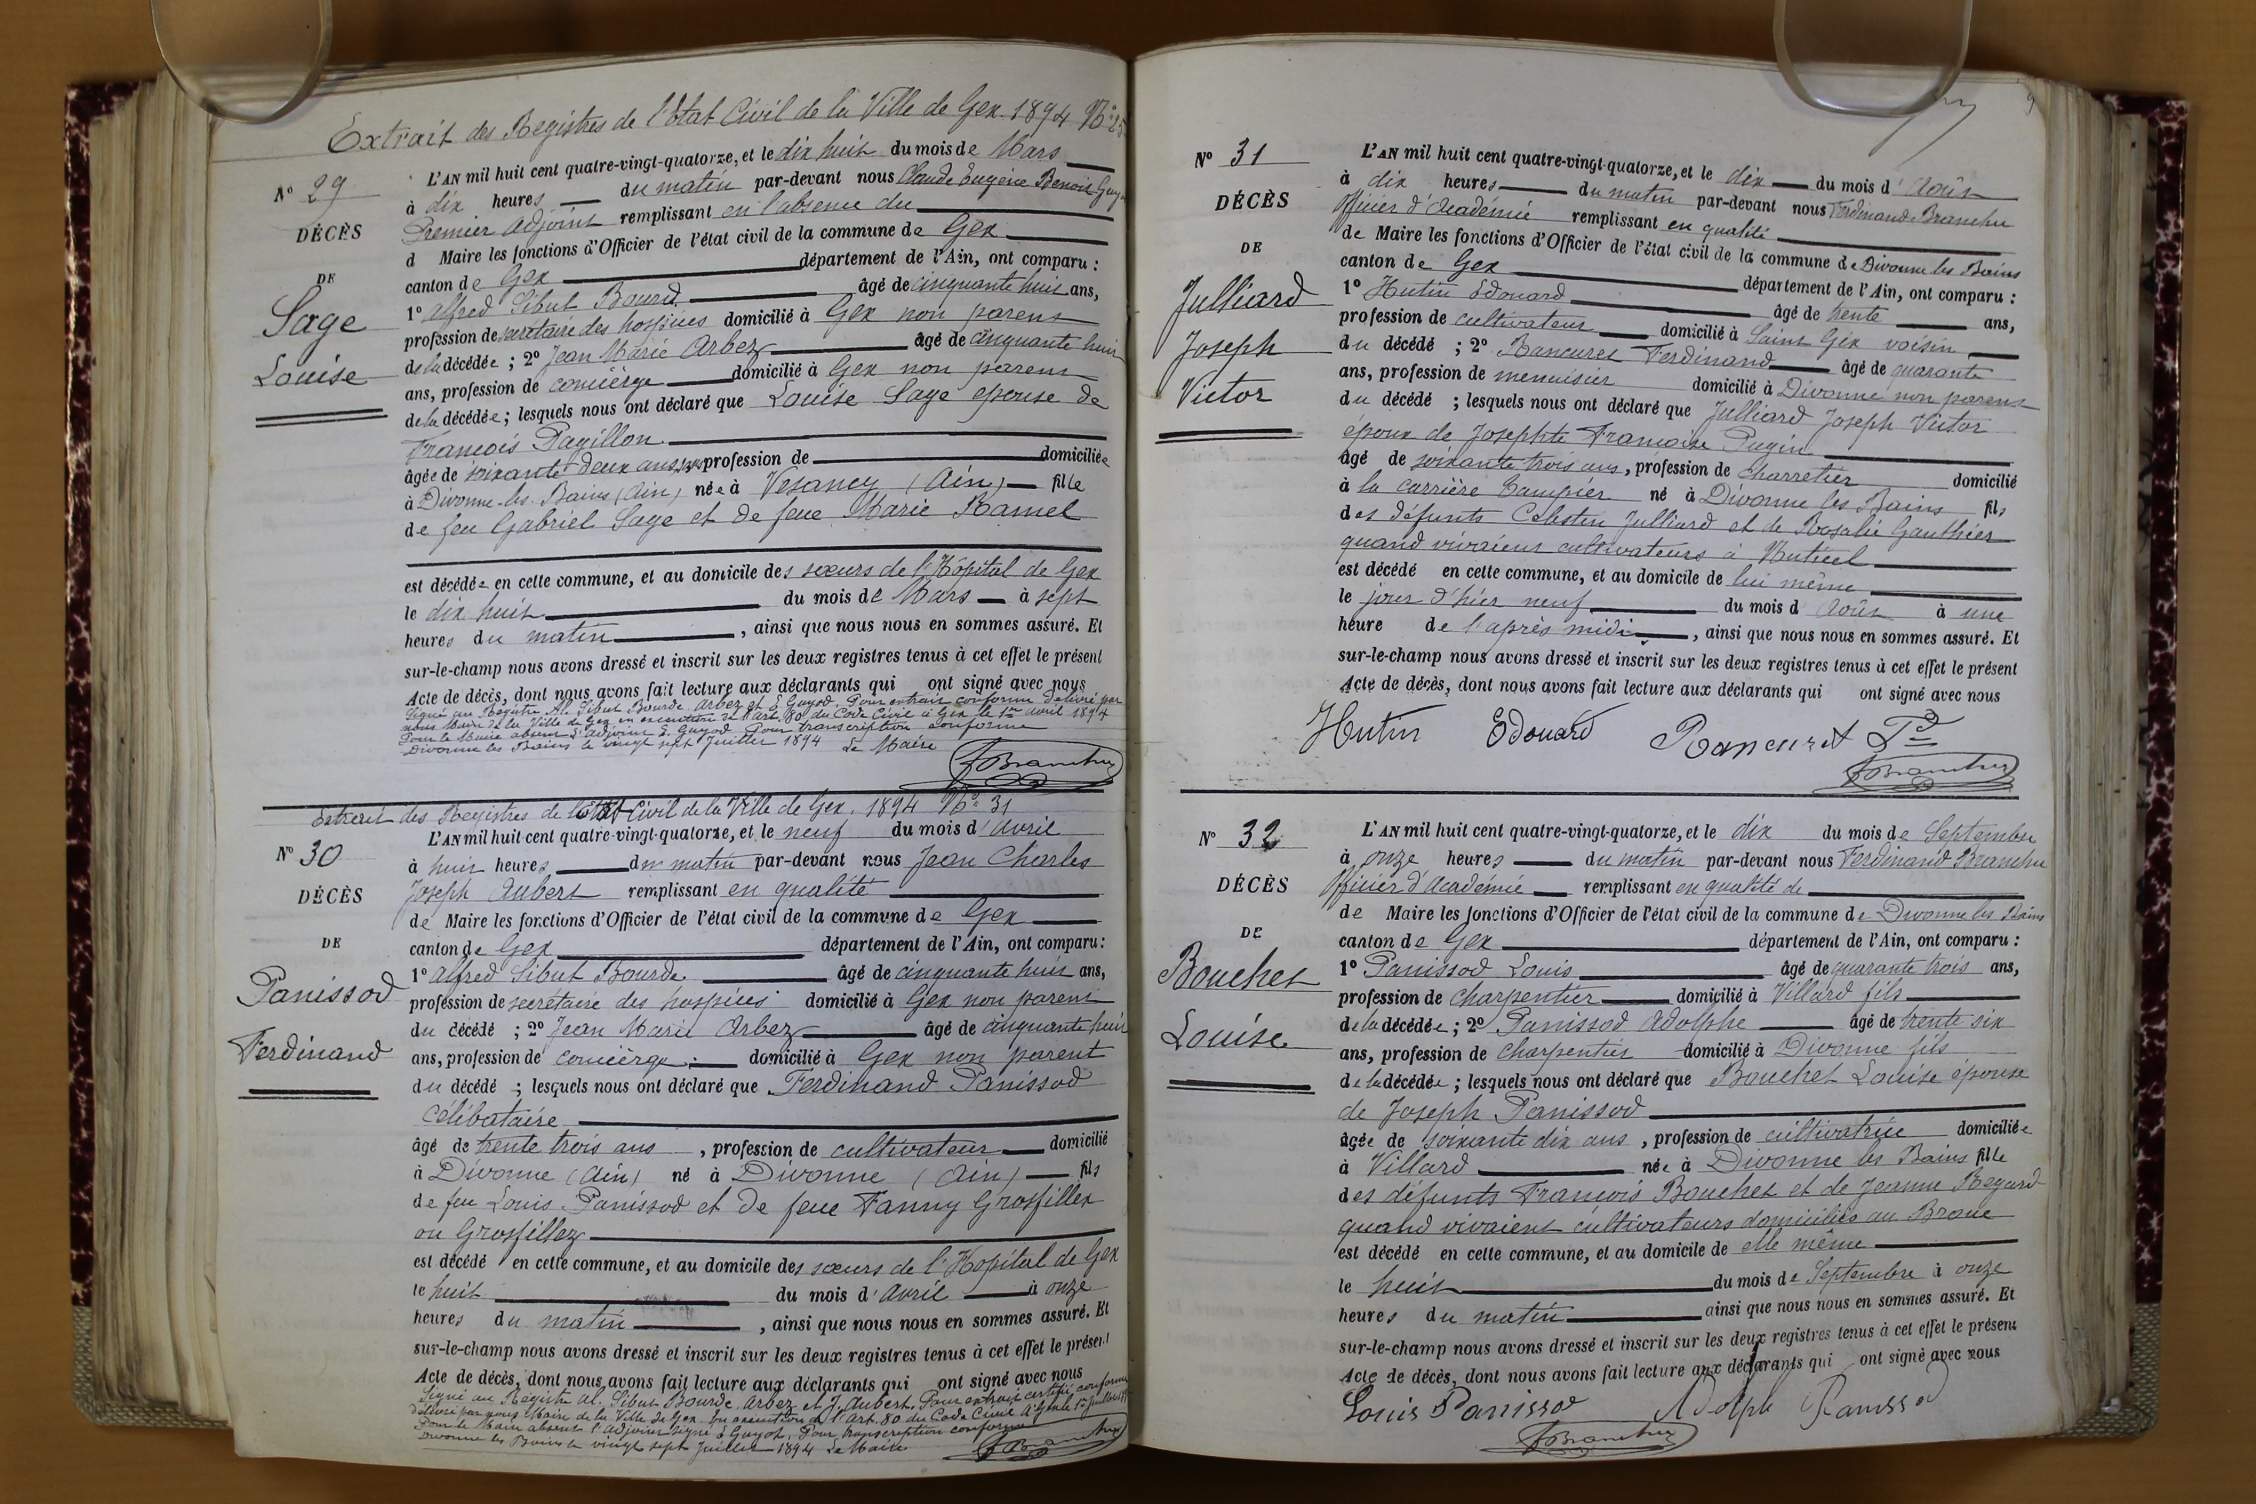 Extrait des Registres de l'état Civil de la Ville de Gex. 1894 No 25
N° 29
DÉCÈS
DE
Sage
Louise
L'AN mil huit cent quatre-vingt-quatorze, et le dix huit du mois de Mars
à dix heures du matin par-devant nous Claude Eugène Benoit Guyot
Premier adjoint remplissant en l'absence du
d Maire les fonctions d'Officier de l'état civil de la commune de Gex
canton de Gex département de l'Ain, ont comparu :
1° Alfred Sibut Bourde âgé de cinquante huit ans,
profession de secrétaire des hospices domicilié à Gex non parent
de la décédée ; 2° Jean Marie Arbez âgé de cinquante huit
ans, profession de concièrge domicilié à Gex non parent
de la décédée ; lesquels nous ont déclaré que Louise Sage épouse de
François Pagillon
âgée de soixante deux ans, sans profession de domiciliée
à Divonne-les-Bains (Ain) née à Vesancy (Ain) fille
de feu Gabriel Sage et de feue Marie Ramel
est décédée en cette commune, et au domicile des sœurs de l'Hôpital de Gex
le dix huit du mois de Mars à sept
heures du matin, ainsi que nous nous en sommes assuré. Et
sur-le-champ nous avons dressé et inscrit sur les deux registres tenus à cet effet le présent
Acte de décès, dont nous avons fait lecture aux déclarants qui ont signé avec nous
Signé au Registre Al. Sibut Bourde. Arbez et E. Guyot. Pour extrait conforme délivré par
nous Maire de la Ville de Gex en exécution de l'art. 80 du Code Civil à Gex le 1er avril 1894
Pour le Maire absent l'adjoint E. Guyot Pour transcription conforme
Divonne les Bains le vingt sept Juillet 1894 Le Maire
FBranchu
Extrait des Registres de l'état Civil de la Ville de Gex. 1894 No 31
N° 30
DÉCÈS
DE
Panissod
Ferdinand
L'AN mil huit cent quatre-vingt-quatorze, et le neuf du mois d'avril
à huit heures du matin par-devant nous Jean Charles
Joseph Aubert remplissant en qualité
de Maire les fonctions d'Officier de l'état civil de la commune de Gex
canton de Gex département de l'Ain, ont comparu :
1° Alfred Sibut Bourde âgé de cinquante huit ans,
profession de secrétaire des hospices domicilié à Gex non parent
du décédé ; 2° Jean Marie Arbez âgé de cinquante huit
ans, profession de concièrge domicilié à Gex non parent
du décédé ; lesquels nous ont déclaré que Ferdinand Panissod
célibataire
âgé de trente trois ans, profession de cultivateur domicilié
à Divonne (Ain) né à Divonne (Ain) fils
de feu Louis Panissod et de feue Fanny Grosfillex
ou Grosfillez
est décédé en cette commune, et au domicile des sœurs de l'Hopital de Gex
le huit du mois d'avril à onze
heures du matin, ainsi que nous nous en sommes assuré. Et
sur-le-champ nous avons dressé et inscrit sur les deux registres tenus à cet effet le présent
Acte de décès, dont nous avons fait lecture aux déclarants qui ont signé avec nous
Signé au Registre Al. Sibut Bourde, Arbez et J. Aubert. Pour extrait certifié conforme
délivré par nous Maire de la Ville de Gex en exécution de l'Art. 80 du Code Civil A Gex le 1er Juillet
Pour le Maire absent l'Adjoint signé E. Guyot. Pour transcription conforme
Divonne les Bains le vingt sept Juillet 1894 Le Maire
FBranchu
9
N° 31
DÉCÈS
DE
Julliard
Joseph
Victor
L'AN mil huit cent quatre-vingt-quatorze, et le dix du mois d'Août
à dix heures du matin par-devant nous Ferdinand Branchu
Officier d'Académie remplissant en qualité
de Maire les fonctions d'Officier de l'état civil de la commune de Divonne les Bains
canton de Gex département de l'Ain, ont comparu :
1° Hutin Edouard âgé de trente ans,
profession de cultivateur domicilié à Saint Gix voisin
du décédé ; 2° Rancuret Ferdinand âgé de quarante
ans, profession de menuisier domicilié à Divonne non parent
du décédé ; lesquels nous ont déclaré que Julliard Joseph Victor
époux de Josephte Françoise Pugin
âgé de soixante trois ans, profession de charretier domicilié
à la carrière Tampier né à Divonne les Bains fils
des défunts Celestin Julliard et de Rosalie Gauthier
quand vivaient cultivateurs à
est décédé en cette commune, et au domicile de lui même
le jour d'hier neuf du mois d'Août à une
heure de l'après midi, ainsi que nous nous en sommes assuré. Et
sur-le-champ nous avons dressé et inscrit sur les deux registres tenus à cet effet le présent
Acte de décès, dont nous avons fait lecture aux déclarants qui ont signé avec nous
Hutin Edouard Rancuret Fd
FBranchu
N° 32
DÉCÈS
DE
Bouchet
Louise
L'AN mil huit cent quatre-vingt-quatorze, et le dix du mois de Septembre
à onze heures du matin par-devant nous Ferdinand Branchu
Officier d'Académie remplissant en qualité de
de Maire les fonctions d'Officier de l'état civil de la commune de Divonne les Bains
canton de Gex département de l'Ain, ont comparu :
1° Panissod Louis âgé de quarante trois ans,
profession de charpentier domicilié à Villard fils
de la décédée ; 2° Panissod Adolphe âgé de trente six
ans, profession de charpentier domicilié à Divonne fils
de la décédée ; lesquels nous ont déclaré que Bouchet Louise épouse
de Joseph Panissod
âgée de soixante dix ans, profession de cultivatrice domiciliée
à Villard née à Divonne les Bains fille
des défunts François Bouchet et de Jeanne Regard
quand vivaient cultivateurs domiciliés au Broue
est décédé en cette commune, et au domicile de elle même
le huit du mois de Septembre à onze
heures du matin ainsi que nous nous en sommes assuré. Et
sur-le-champ nous avons dressé et inscrit sur les deux registres tenus à cet effet le présent
Acte de décès, dont nous avons fait lecture aux déclarants qui ont signé avec nous
Louis Panissod Adolph Panissod
FBranchu